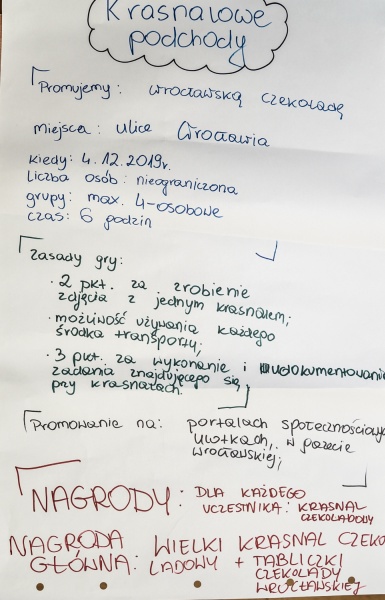 Krasnalowe
podchody
Promujemy: wrocławską czekoladę
miejsca: ulice Wrocławia
kiedy: 4.12.2019r.
Liczba osób: nieograniczona
grupy: max. 4-osobowe
czas: 6 godzin
Zasady gry:
· 2 pkt. za zrobienie
zdjęcia z jednym krasnalem;
· możliwość używania każdego
środka transportu;
· 3 pkt. za wykonanie i udokumentowanie
zadania znajdującego się
przy krasnalach.
Promowanie na: portalach społecznościowych
ulotkach, w gazecie
wrocławskiej;
NAGRODY: DLA KAŻDEGO
UCZESTNIKA: KRASNAL
CZEKOLADOWY
NAGRODA WIELKI KRASNAL CZEKO
GŁÓWNA: LADOWY + TABLICZKI
CZEKOLADY
WROCŁAWSKIEJ